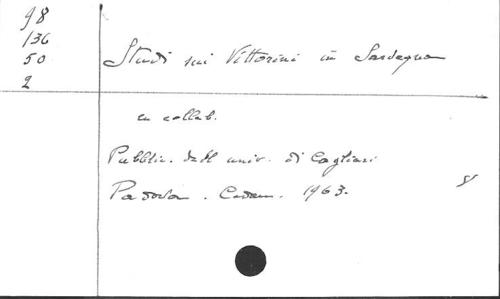 98
136
50
2
Studi sui Vittorini in Sardegna
en collab.
Pubblic. dell univ. di Cagliari
Padova. Cedam. 1963.